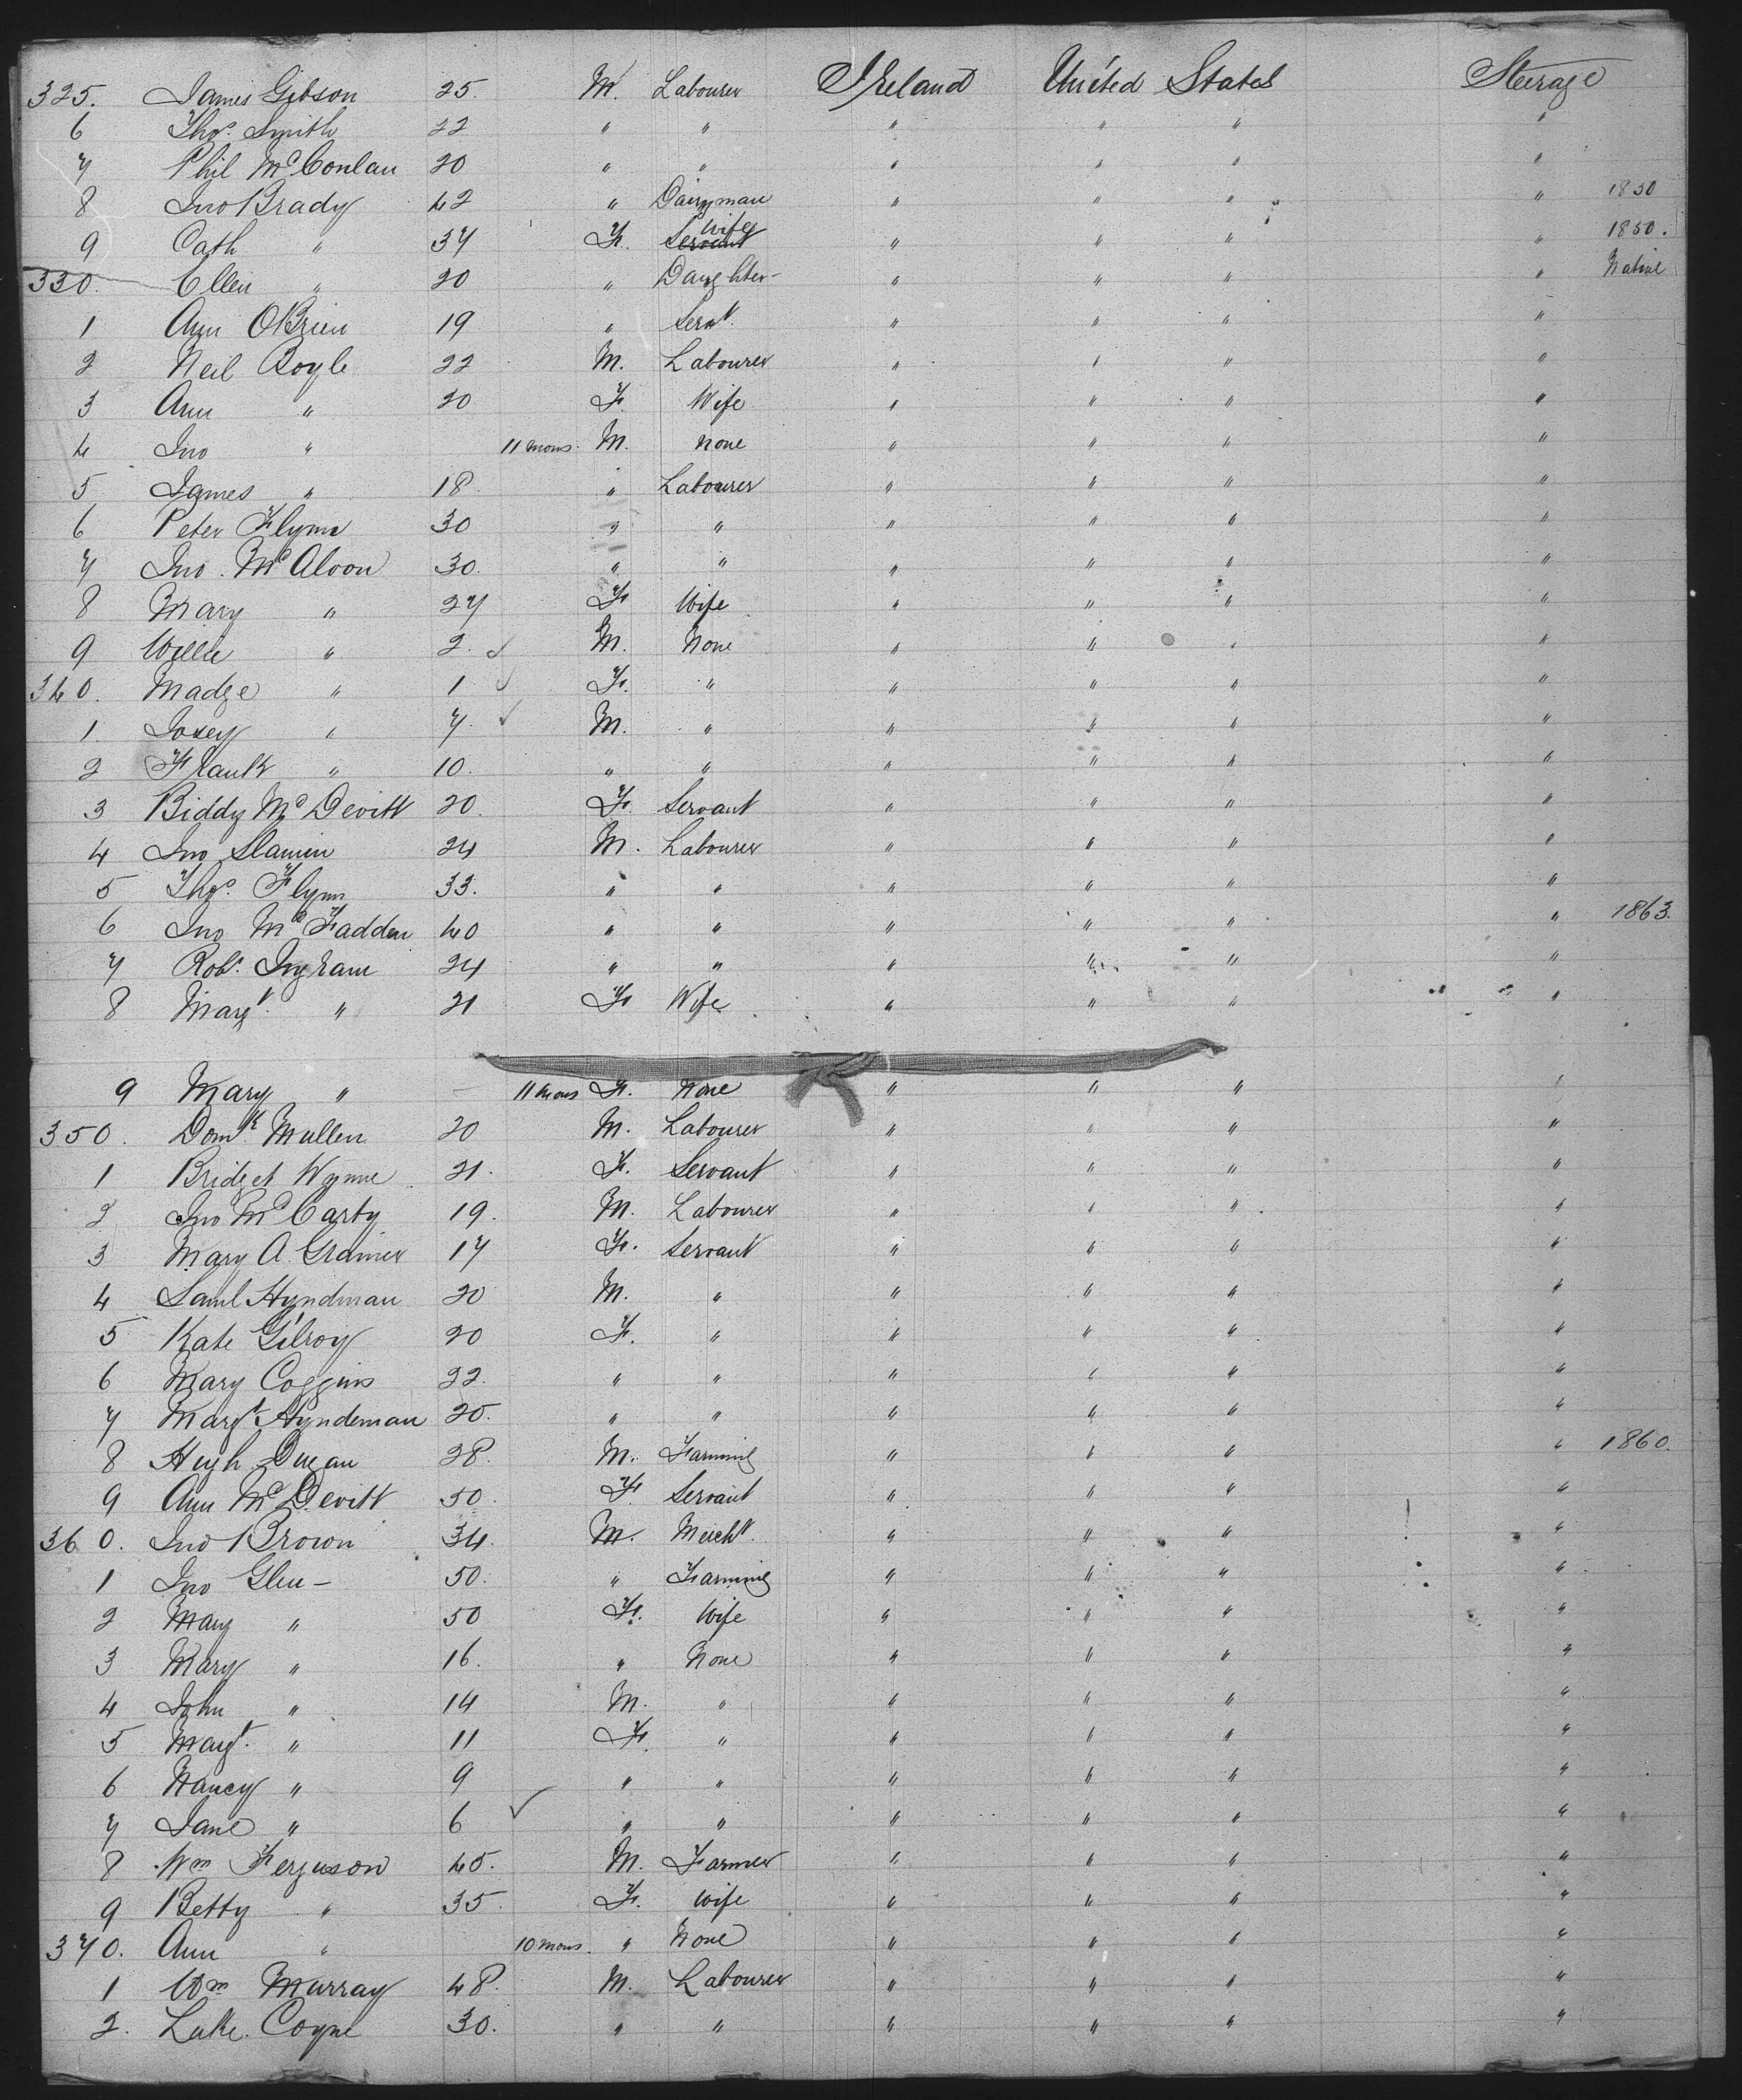 325. James Gibson 25. M. Labourer Ireland United States Steerage
6 Thos. Smith 22 " " " " " "
7 Phil McConlan 20 " " " " " "
8 Jno Brady 42 " Dairyman " " " " 1850
9 Cath " 37 F. Servant Wife " " " " 1850.
330. Ellen " 20 " Daughter " " " " Native
1 Ann OBrien 19 " Servt. " " " "
2 Neil Boyle 22 M. Labourer " " " "
3 Ann " 20 F. Wife " " " "
4 Jno " 11 mons. M. None " " " "
5 James " 18. " Labourer " " " "
6 Peter Flynn 30 " " " " " "
7 Jno. McAloon 30. " " " " " "
8 Mary " 27 F. Wife " " " "
9 Willie " 2. ✓ M. None " " " "
340. Madge " 1 ✓ F. " " " " "
1 Josey " 7. ✓ M. " " " " "
2 Frank " 10. " " " " " "
3 Biddy McDevitt 20. F. Servant " " " "
4 Jno Slamin 24 M. Labourer " " " "
5 Thos. Flynn 33. " " " " " "
6 Jno McFadden 40 " " " " " " 1863.
7 Robt. Ingram 24 " " " " " "
8 Margt. " 21 F. Wife " " " "
9 Mary " 11 mons F. None " " " "
350. Domk Mullen 20 M. Labourer " " " "
1 Bridget Wynne 21. F. Servant " " " "
2 Jno McCarty 19. M. Labourer " " " "
3 Mary A. Grainer 17 F. Servant " " " "
4 Saml Hyndman 20 M. " " " " "
5 Kate Gilroy 20 F. " " " " "
6 Mary Coggins 22. " " " " " "
7 Margt Hyndeman 25. " " " " " "
8 Hugh Dugan 28. M. Farming " " " " 1860.
9 Ann McDevitt 50. F. Servant " " " "
360. Jno Brown 34. M. Mercht " " " "
1 Jno Glen - 50. " Farming " " " "
2 Mary " 50 F. Wife " " " "
3 Mary " 16. " None " " " "
4 John " 14 M. " " " " "
5 Margt. " 11 F. " " " " "
6 Nancy " 9 " " " " " "
7 Jane " 6 ✓ " " " " " "
8 Wm Ferguson 45. M. Farmer " " " "
9 Betty " 35. F. Wife " " " "
370. Ann " 10 mons. " None " " " "
1 Wm Murray 48. M. Labourer " " " "
2. Luke. Coyne 30. " " " " " "